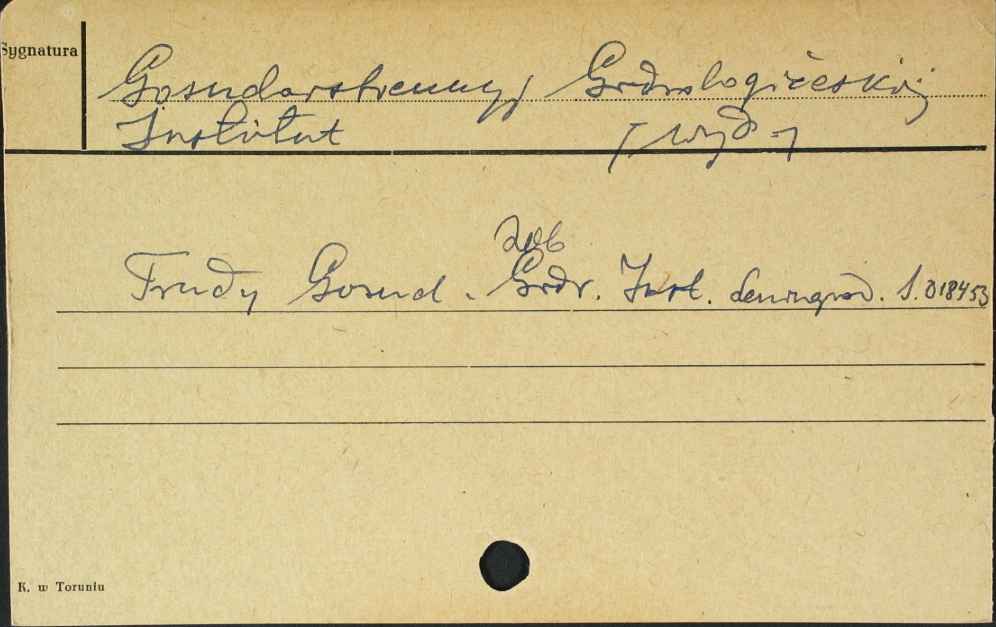 Sygnatura
Gosudarstvennyj Gidrologičeskij
Institut [wyd.]
zob
Trudy Gosud. Gidr. Inst. Leningrad. S.018453
K. w Toruniu